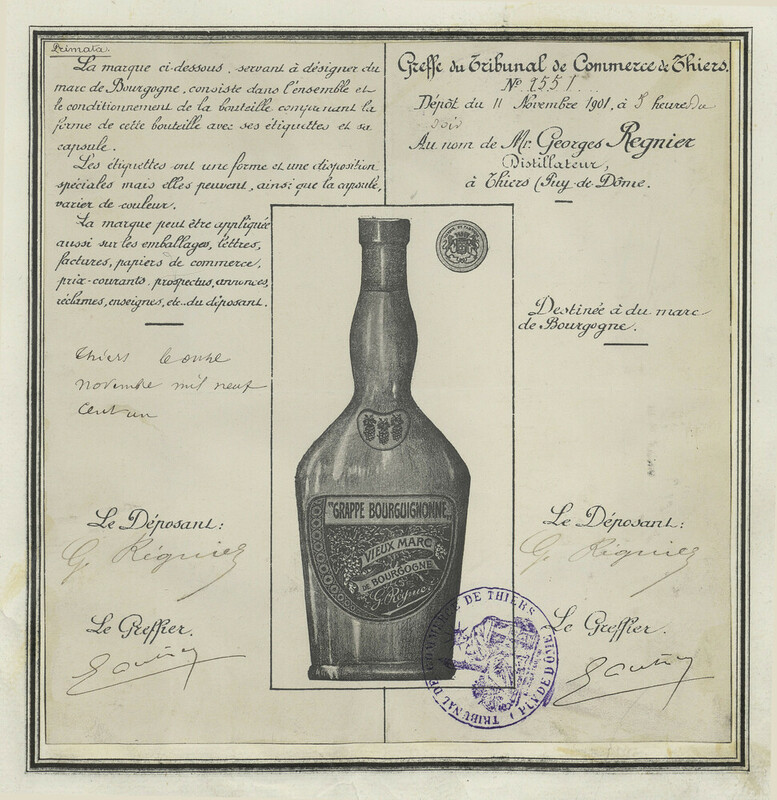 Primata.
La marque ci-dessous, servant à désigner du
marc de Bourgogne, consiste dans l'ensemble et
le conditionnement de la bouteille comprenant la
forme de cette bouteille avec ses étiquettes et sa
capsule.
Les étiquettes ont une forme et une disposition
spéciales mais elles peuvent, ainsi que la capsule,
varier de couleur.
La marque peut être appliquée
aussi sur les emballages, lettres,
factures, papiers de commerce,
prix-courants, prospectus, annonces,
réclames, enseignes, etc.. du déposant.
Thiers le onze
novembre mil neuf
cent un
Le Déposant:
G. Régnier
Le Greffier.
Greffe du Tribunal de Commerce de Thiers.
N° 1551.
Dépôt du 11 Novembre 1901, à 5 heures du
soir
Au nom de Mr. Georges Regnier
Distillateur,
à Thiers (Puy-de-Dôme.
Destinée à du marc
de Bourgogne.
Le Déposant:
G. Régnier
Le Greffier.
"GRAPPE BOURGUIGNONNE„
VIEUX MARC
DE BOURGOGNE
G. Régnier
TRIBUNAL DE COMMERCE DE THIERS
(PUY DE DÔME)